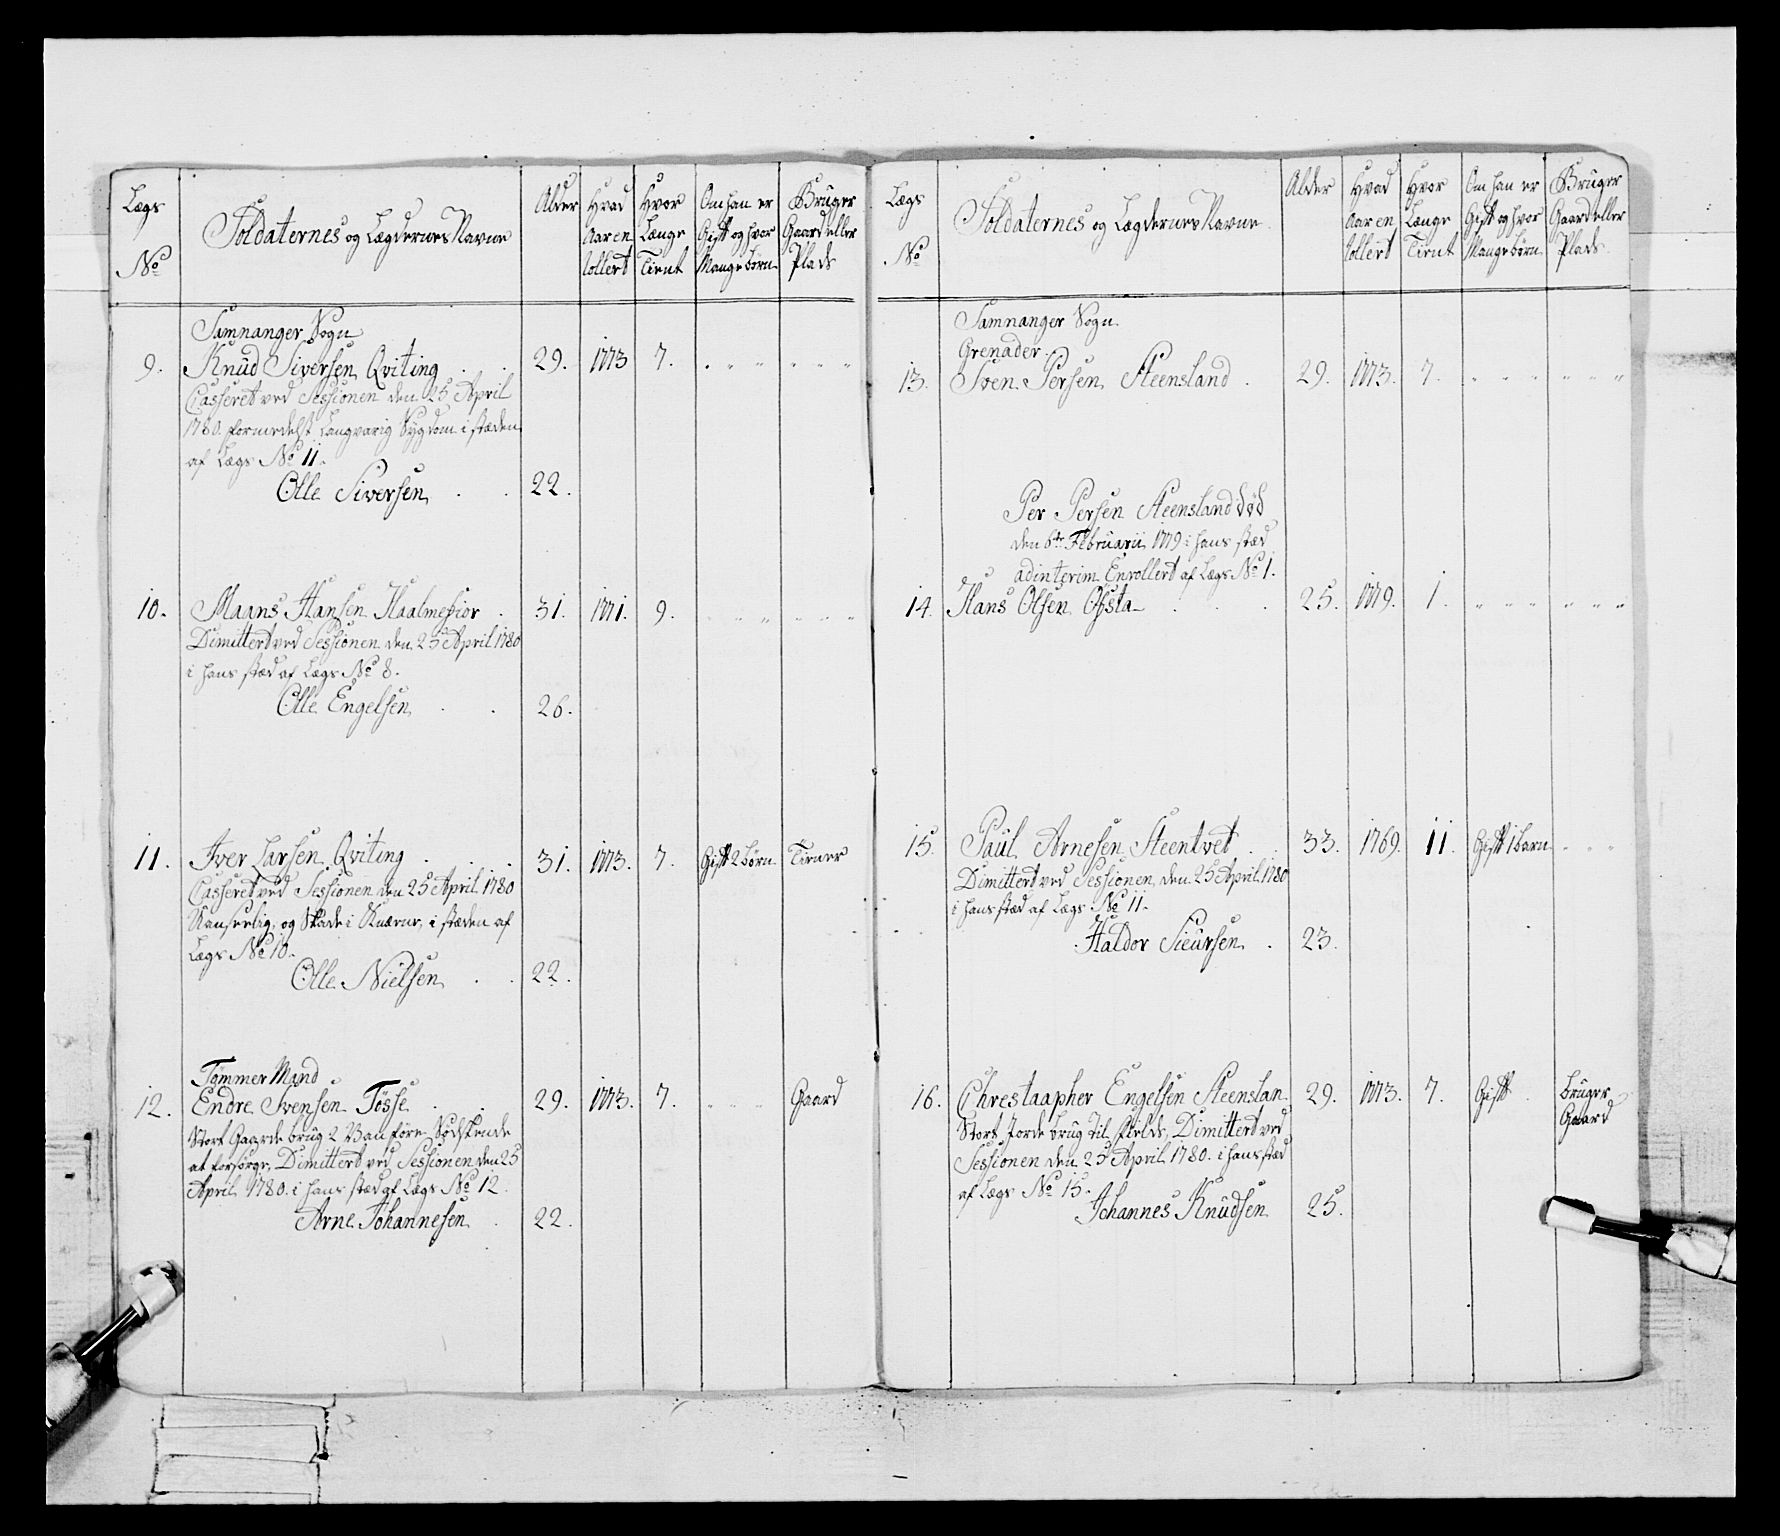 Lægs
No
Soldaternes og Lægdernes Navne
Alder
Hvad
Aar en
rollert
Hvor
Længe
Tient
Om han er
Gift og hvor
Mange børn
Bruger
Gaard eller
Plads
Samnanger Sogn
9. Knud Siversen Qviting . . 29. 1773 7. . " " " " "
Casseret ved Sessionen den 25 April
1780 formedelst Langvarig Sygdom i stæden
af Lægs No 11.
Olle Siversen . . 22.
10. Maans Hansen Haalmefior . 31. 1771. 9. " " " " "
Dimittert ved Sessionen den 25 April 1780
i hans stæd af Lægs No 8.
Olle Engelsen . . 26.
11. Iver Larsen Qviting . . . 31. 1773. 7. Gift 2 børn Tiener
Casseret ved Sessionen den 25 April 1780
og Skade i i stæden af
Lægs No 10.
Olle Nielsen . . 22.
Tømmer Mand
12. Endre Svensen Tøsse . . 29. 1773. 7. " " " Gaard
Stort Gaarde brug 2 Vanføre Sødskende
at forsørge, Dimittert ved Sessionen den 25
April 1780. i hans stæd af Lægs No 12.
Arne Johannesen . 22.
Lægs
No
Soldaternes og Lægdernes Navne
Alder
Hvad
Aar en
rollert
Hvor
Længe
Tient
Om han er
Gift og hvor
Mange børn
Bruger
Gaard eller
Plads
Samnanger Sogn.
Grenader.
13. Sven Persen Steensland . 29. 1773. 7. " " " " " "
Per Persen Steensland død
den 6te Februarii 1779 i hans stæd
adinterim Enrollert af Lægs No 1.
14. Hans Olsen Ofsta . . . 25. 1779. 1. " " " " " "
15. Paul Arnesen Steentvet . . 33. 1769. 11. Gift 1 barn " " "
Dimittert ved Sessionen den 25 April 1780
i hans stæd af Lægs No 11.
Haldor Sieursen . 23.
16. Chrestaapher Engelsen Steenslan 29. 1773. 7. Gift . bruger
Gaard
Stort Jorde brug til fields, Dimittert ved
Sessionen den 25 April 1780. i hans stæd
af Lægs No 15.
Johannes Knudsen 25.